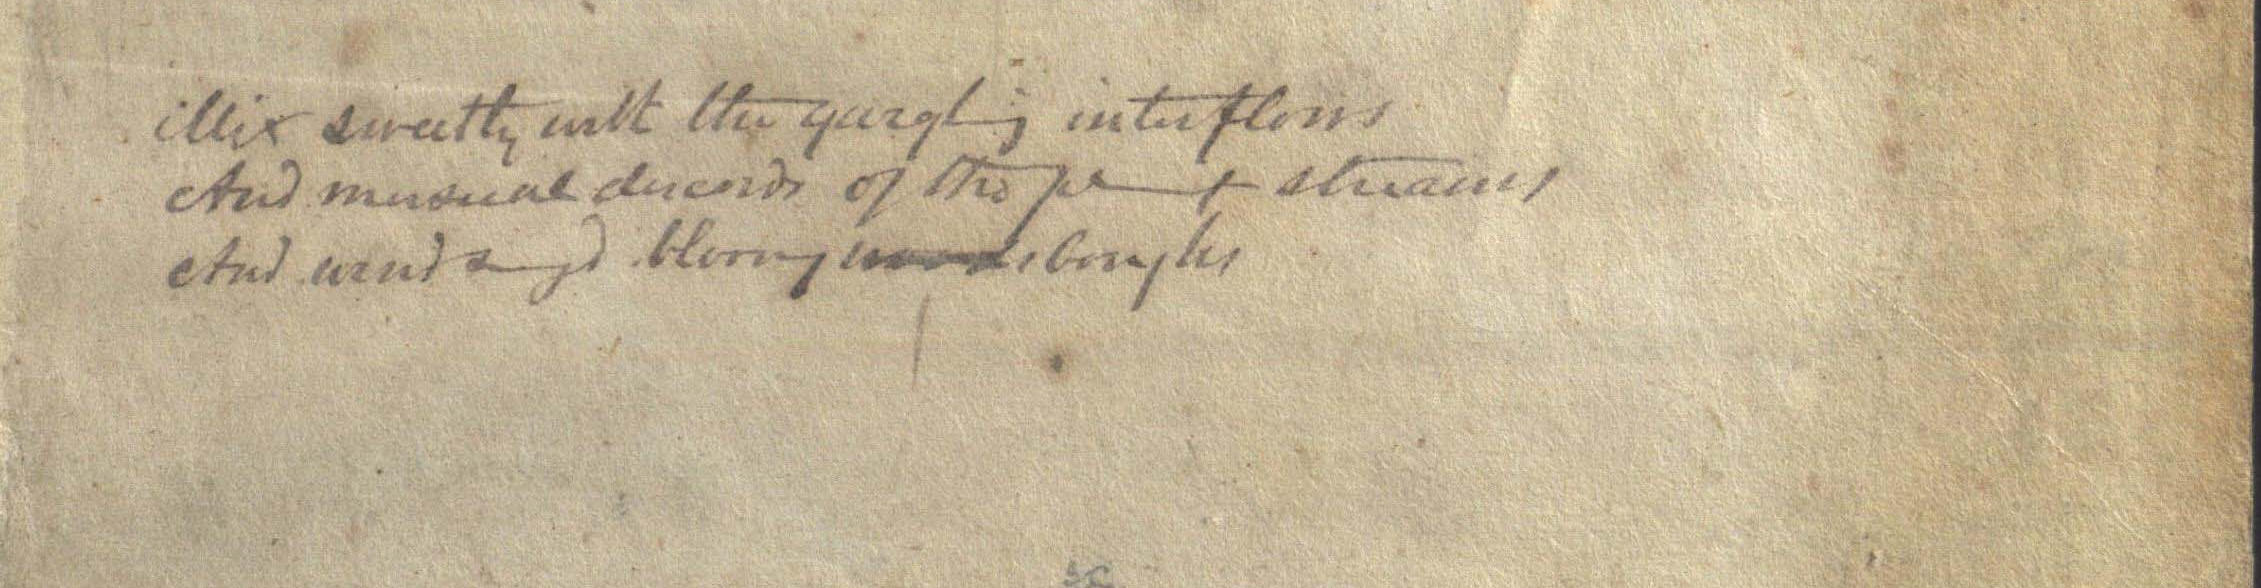 Mix sweetly with the gurgling interflows
And musical discords of the streams
And wind blooming boughs